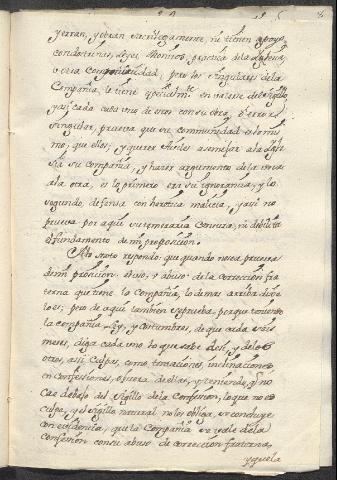 yerran, y obran sacrilegamente, ni tienen apoyo,
con doctrinas, Leyes, Monitos, practica de la Iglesia,
u otra Communidad; pero los singulares de la
Compañia, le tiene en valerse del Sigillo,
y assi cada culto uno de esos con su obra, o error
singular, prueva que su communidad es lo mis
mo, que ellos; y querer asemejar a la Igle
sia su Compañia, y hazer argumento de la una
a la otra, es lo primero era su ignorancia, y lo
segundo, defensa con heretica malicia, y assi no
prueva por aqui su temeraria Censura, ni debilita
el fundamento de mi proposicion.
respondo: que quando no sea prueva
de mi proposicion el uso, o abuso de la correccion fra
terna que tiene la Compañia, lo demas arriba dicho
lo es; pero de aqui tambien se prueba, porque teniendo
la Compañia Ley, y costumbres, de que cada seis
meses, diga cada uno lo que sabe de si, y de los
otros, assi culpas, como tentaciones, inclinaciones
en confessiones, o fuera de ellas, y teniendo, q no
cae debajo del sigillo de la Confession, lo que no es
culpa, y el sigillo natural no los obliga, se concluye
con evidencia, que la Compañia se vale de la
confession con su abuso de correccion fraterna,
y que la